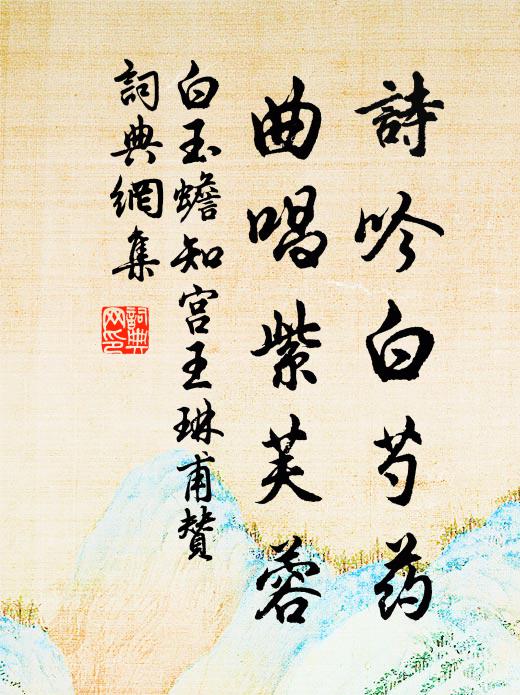 詩吟白芍药
曲唱紫芙蓉
白玉蟾知宫王琳甫賛
詞典網集
詞典网印